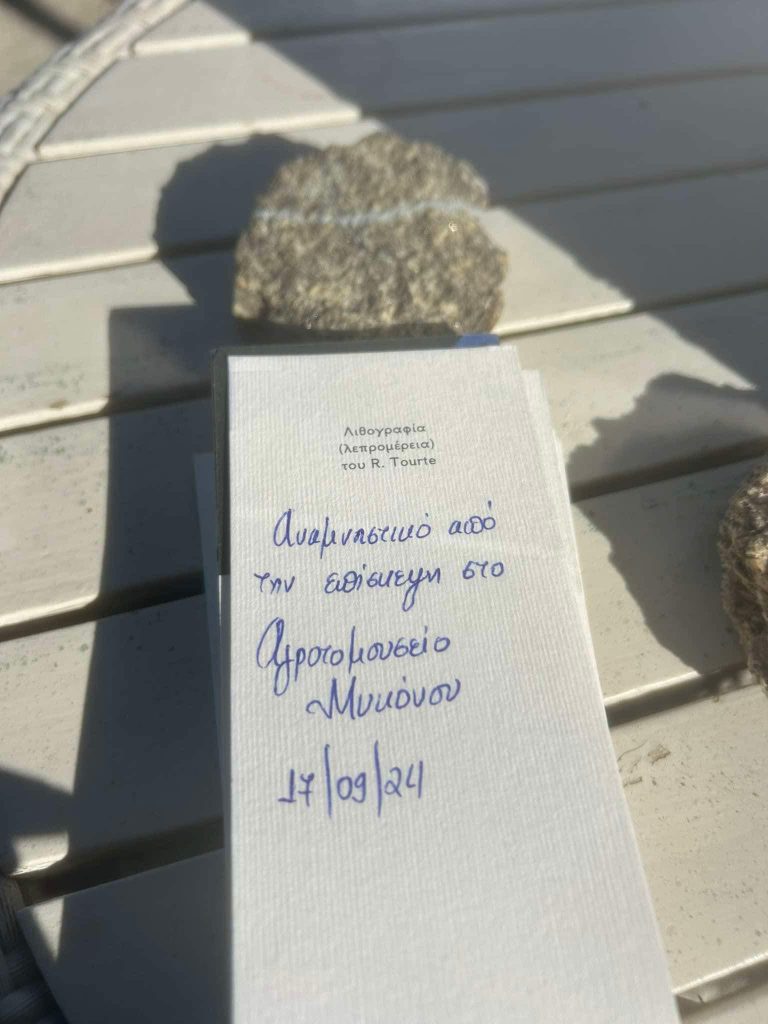 Λιθογραφία
(λεπρομέρεια)
του R. Tourte
Αναμνηστικό από
την επίσκεψη στο
Αγροτομουσείο
Μυκόνου
17/09/24